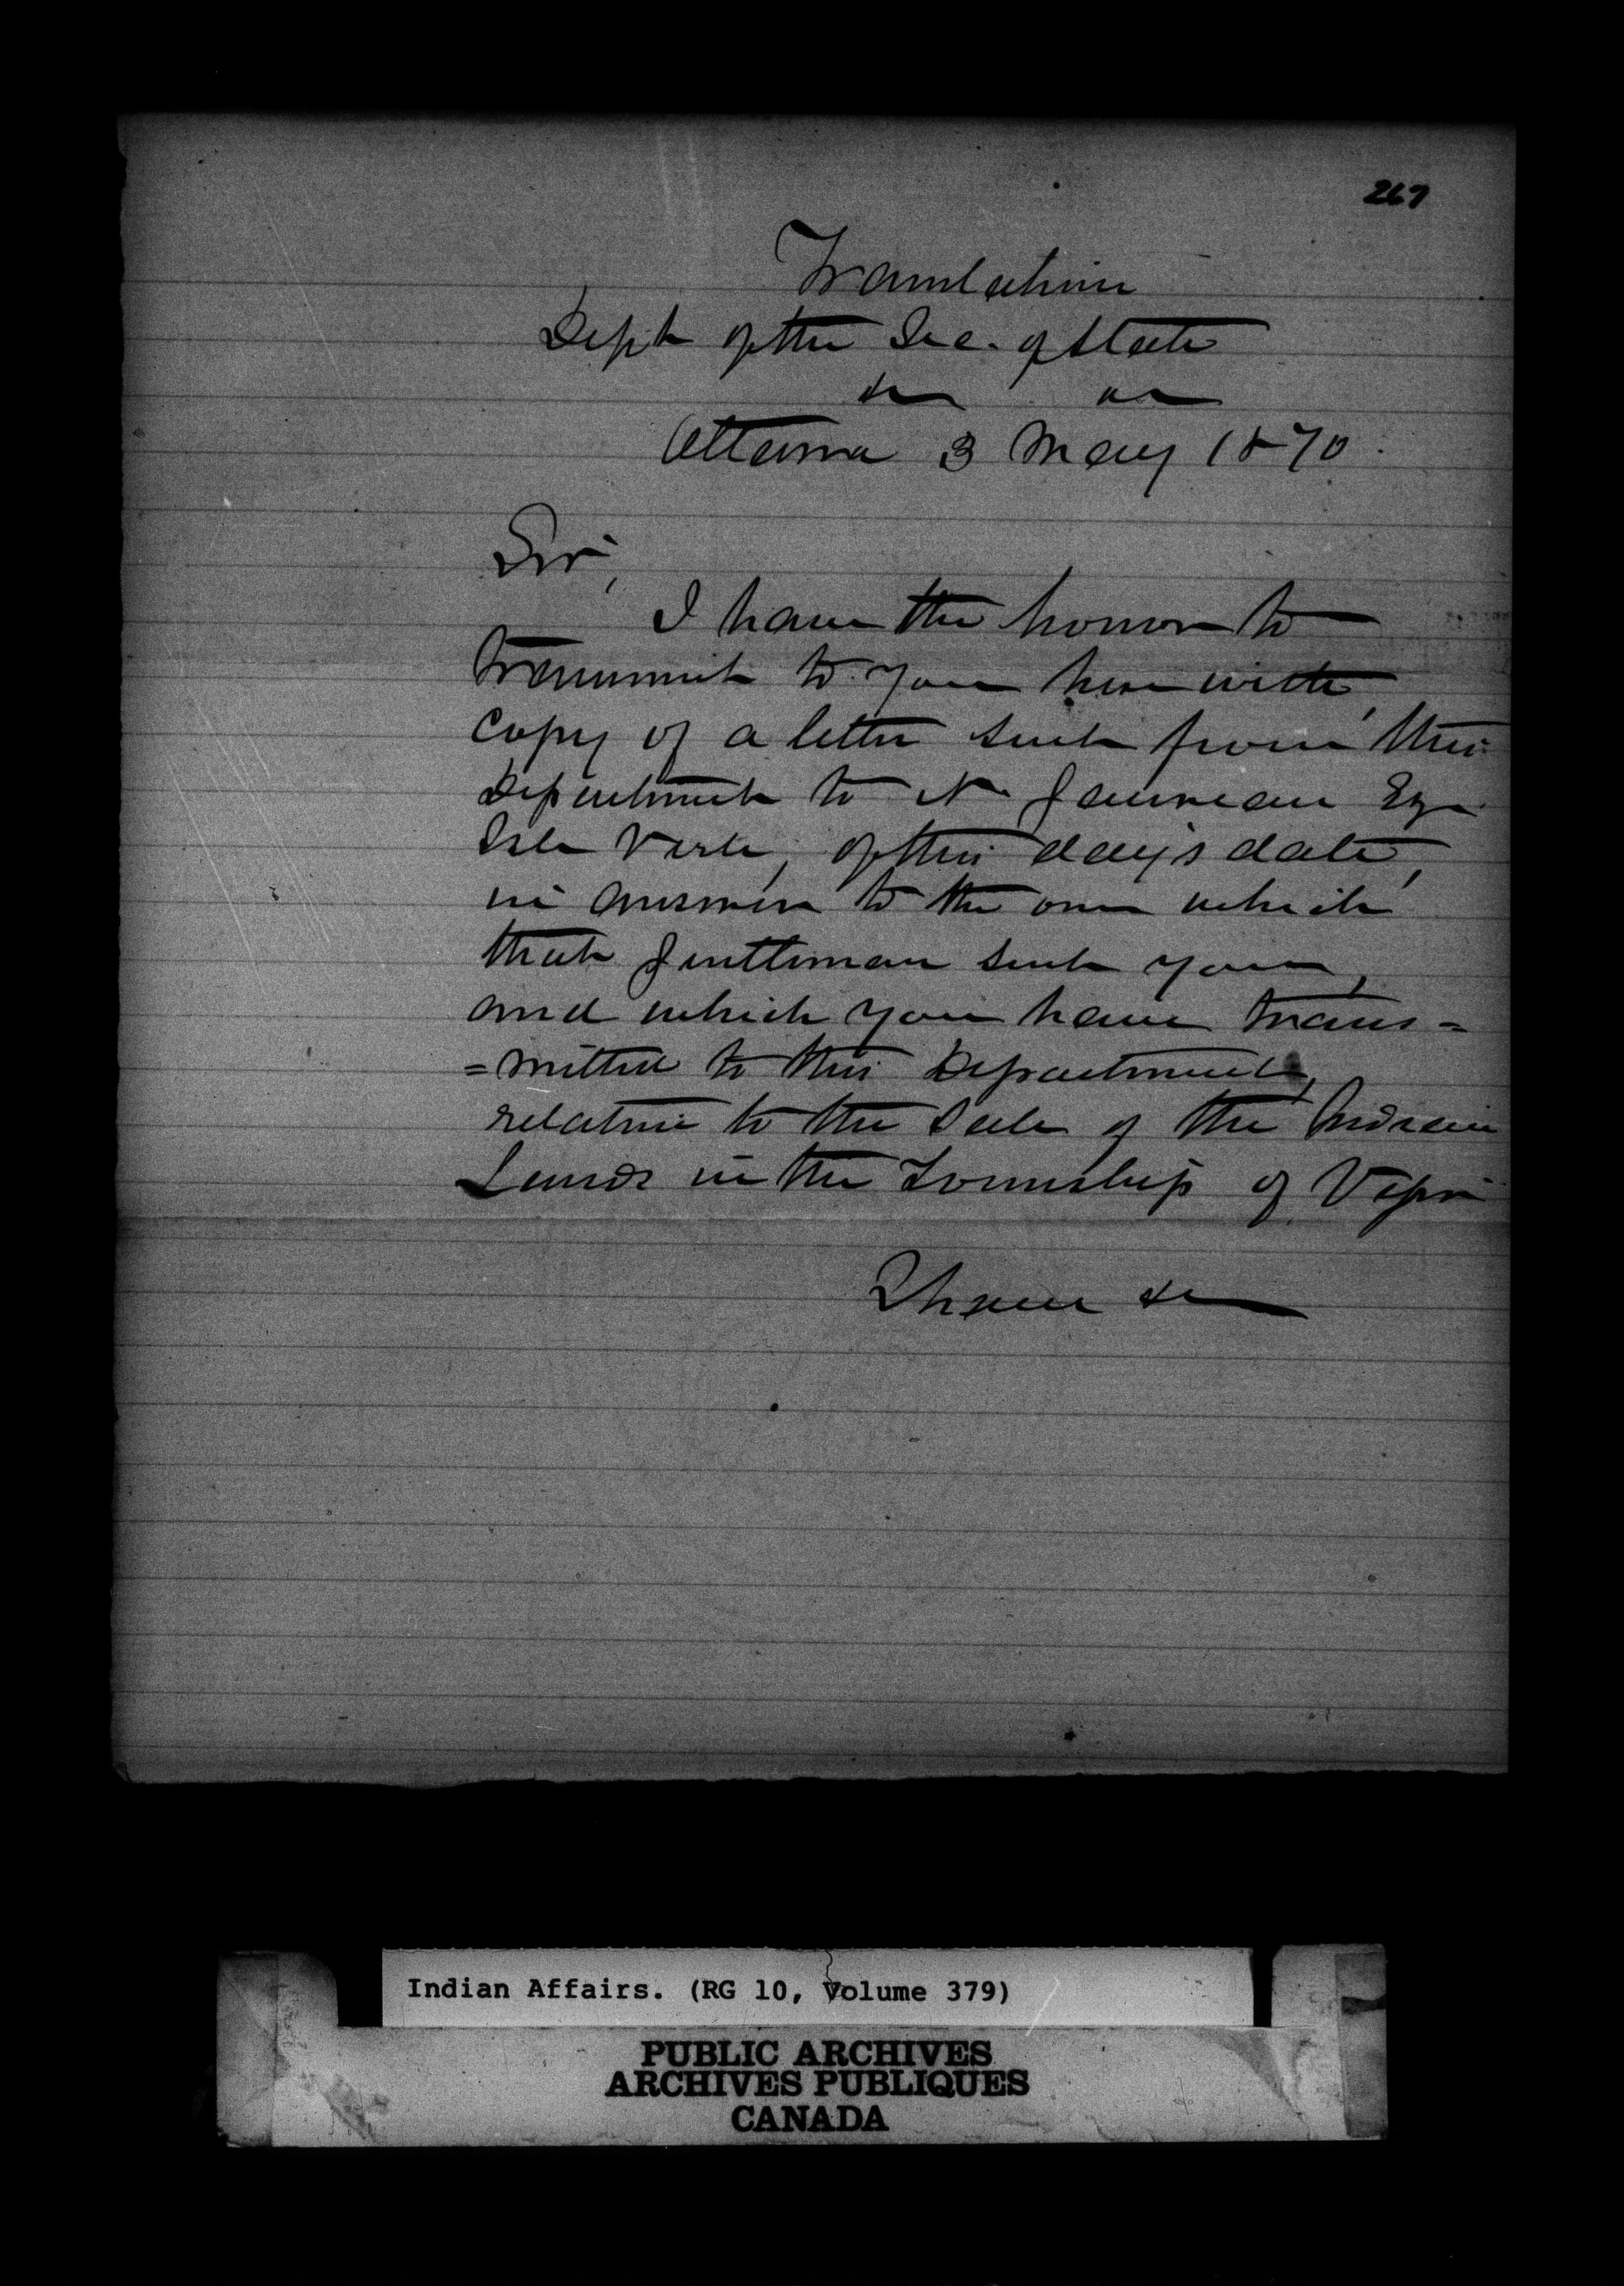 267
Translation
Dept of the Sec. of State
&c &c
Ottawa 3 May 1870.
Sir,
I have the honor to
transmit to you herewith,
copy of a letter sent from this
Department to N. Gauvreau Esqr
Isle Verte, of this day's date,
in answer to the one which
that Gentleman sent you,
and which you have trans=
=mitted to this Department,
relative to the Sale of the Indian
Lands in the Township of Viger
I have &c
Indian Affairs. (RG 10, Volume 379)
PUBLIC ARCHIVES
ARCHIVES PUBLIQUES
CANADA